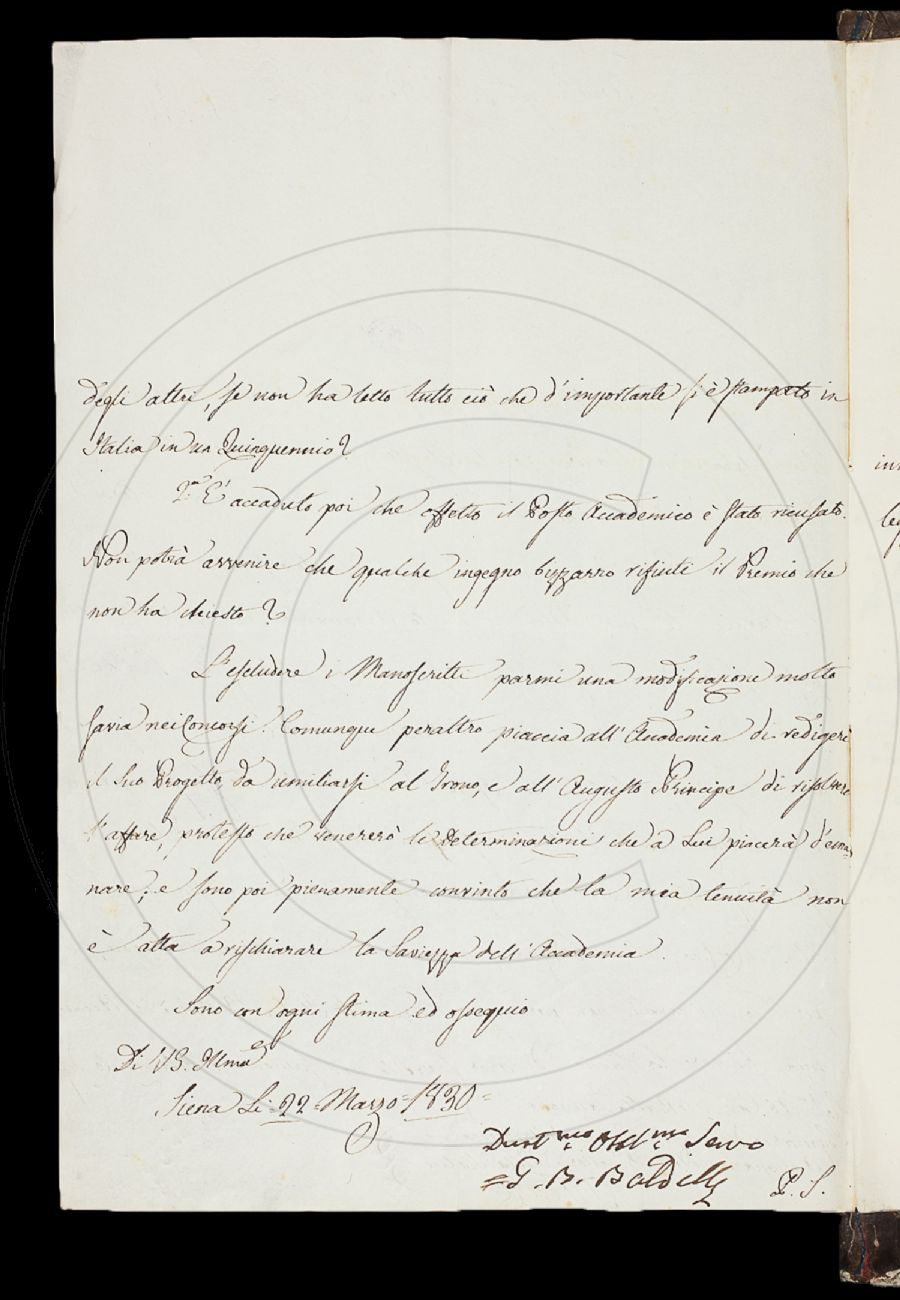 degli altri, se non ha letto tutto ciò che d'importante si è stampato in
Italia in un Quinquennio?
2.° E' accaduto poi che offerto il Posto Accademico è stato ricusato.
Non potrà avvenire che qualche ingegno bizzarro rifiuti il Premio che
non ha chiesto?
L'escludere i Manoscritti parmi una modificazione molto
savia nei Concorsi. Comunque peraltro piaccia all'Accademia di redigere
il suo Progetto, da umiliarsi al Trono, e all'Augusto Principe di risolvere
l'affare, protesto che venererò le Determinazioni che a Lui piacerà d'ema=
nare; e sono poi pienamente convinto che la mia tenuità non
è atta a rischiarare la Saviezza dell'Accademia.
Sono con ogni stima ed ossequio
Di VS. Illma
Siena Li 22 Marzo 1830
Devotmo Obblmo Servo
=G. B. Baldelli
P. S.
in
le